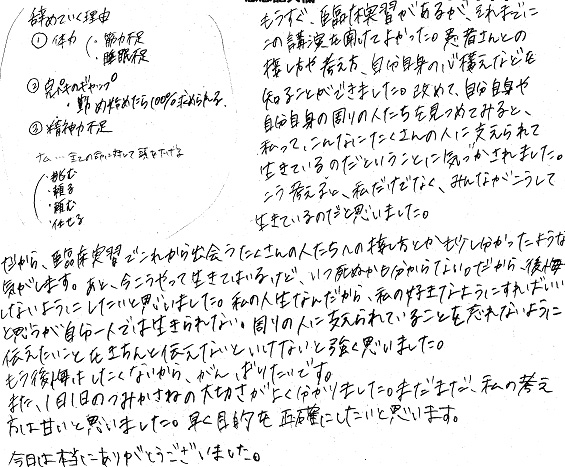 辞めていく理由
① 体力
・筋力不足
・睡眠不足
②
のギャップ
・勤め始めたら100%求められる
③ 精神力不足
ナム… 全ての命に対して頭を下げる
・挑む
・頼る
・頼む
・任せる
もうすぐ、臨床実習があるが、それまでに
この講演を聞けてよかった。患者さんとの
接し方や考え方、自分自身の心構えなどを
知ることができました。改めて、自分自身や
自分自身の周りの人たちを見つめてみると、
私って、こんなにたくさんの人に支えられて
生きているのだということに気づかされました。
こう考えると、私だけでなく、みんながこうして
生きているのだと思いました。
だから、臨床実習でこれから出会うたくさんの人たちへの接し方とかも少し分かったような
気がします。あと、今こうやって生きてはいるけど、いつ死ぬかも分からない。だから、後悔
しないようにしたいと思いました。私の人生なんだから、私の好きなようにすればいい
と思うが自分一人では生きられない。周りの人に支えられていることを忘れないように
伝えたいことをきちんと伝えないといけないと強く思いました。
もう後悔はしたくないから、がんばりたいです。
また、1日1日のつみかさねの大切さがよく分かりました。まだまだ、私の考え
方は甘いと思いました。早く目的を正確にしたいと思います。
今日は本当にありがとうございました。